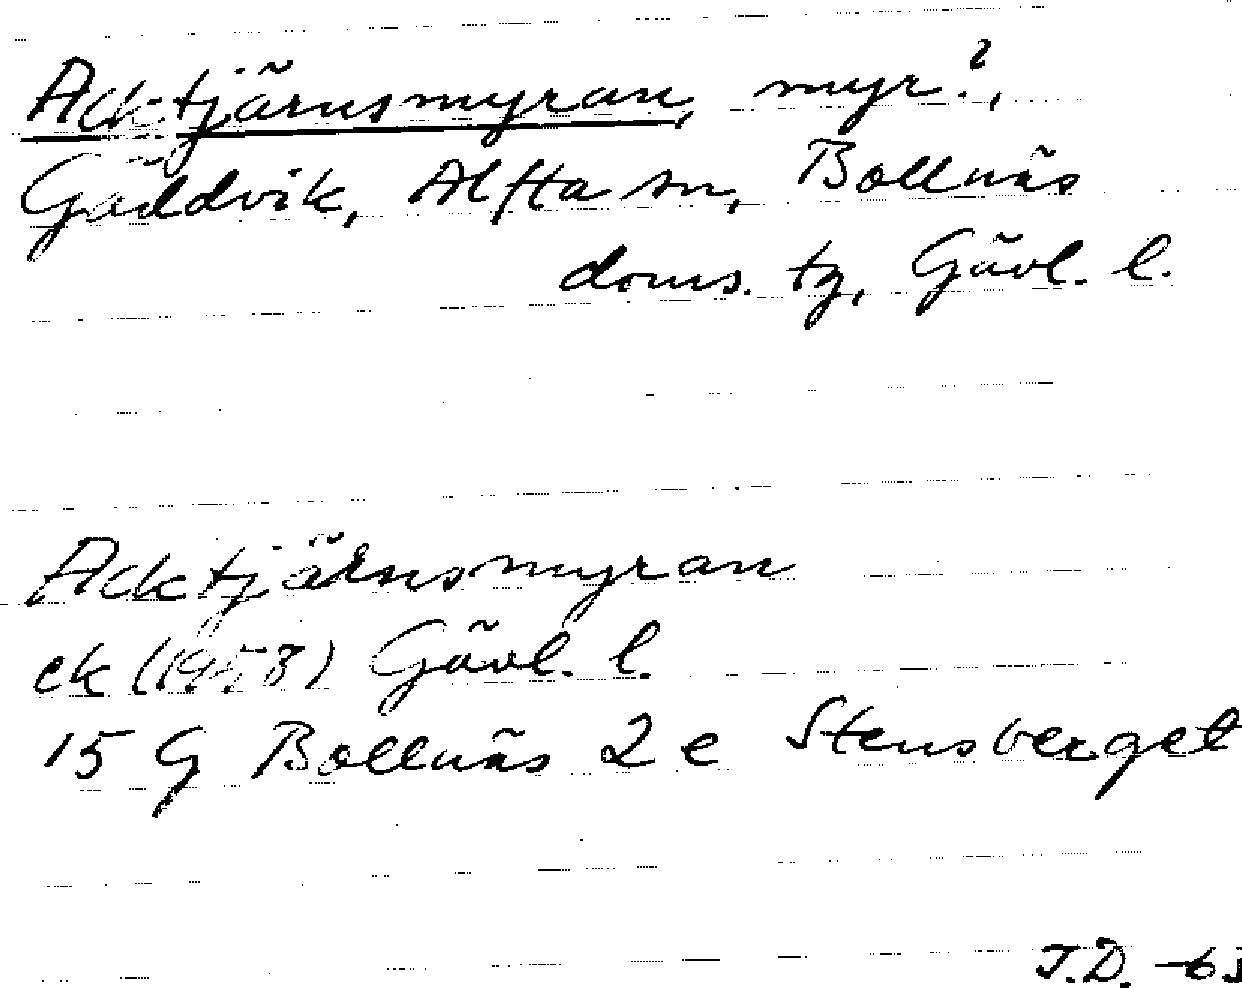 Acktjärnsmyran, myr?,
Gäddvik, Alfta sn, Bollnäs
doms. tg, Gävl. l.
Acktjärnsmyran
ek (1958) Gävl. l.
15 G Bollnäs 2 e Stensberget
J.D.